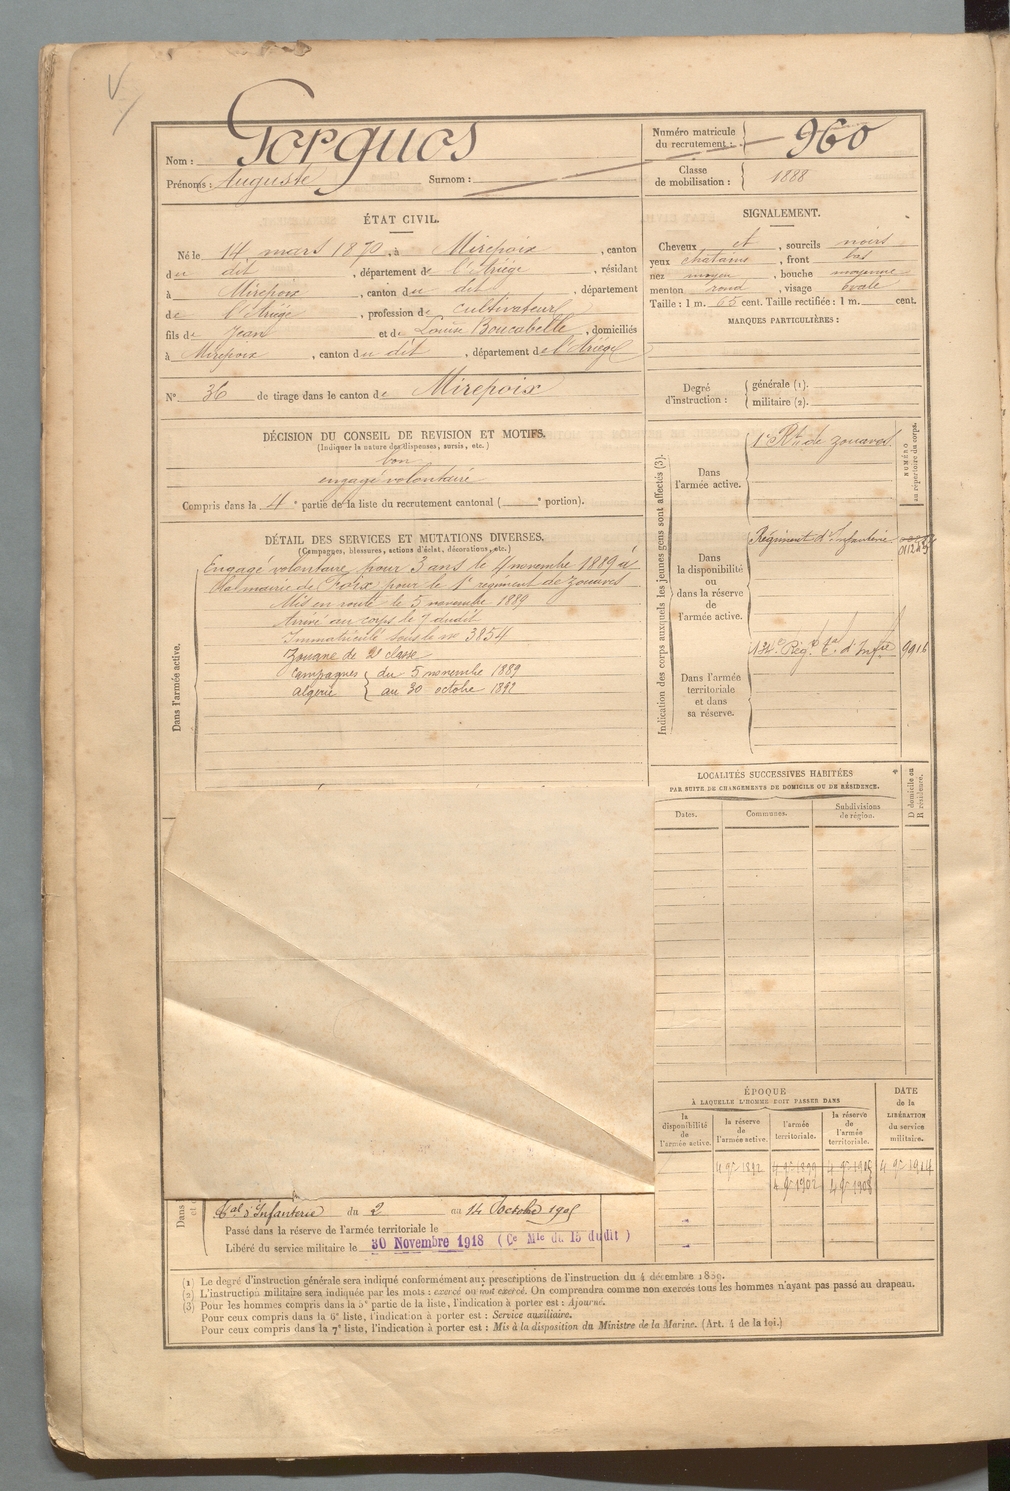 Nom : Gorguos
Prénoms : Auguste Surnom :
Numéro matricule du recrutement : 960
Classe de mobilisation : 1888
ÉTAT CIVIL.
Né le 14 mars 1870, à Mirepoix, canton
du dit, département de l'Ariège, résidant
à Mirepoix, canton du dit, département
de l'Ariège, profession de cultivateur
fils de Jean et de Louise Boucabelle, domiciliés
à Mirepoix, canton du dit, département de l'Ariège
N° 36 de tirage dans le canton de Mirepoix
DÉCISION DU CONSEIL DE REVISION ET MOTIFS.
(Indiquer la nature des dispenses, sursis, etc.)
bon
engagé volontaire
Compris dans la 4e partie de la liste du recrutement cantonal ( e portion).
DÉTAIL DES SERVICES ET MUTATIONS DIVERSES.
(Campagnes, blessures, actions d'éclat, décorations, etc.)
Dans l'armée active.
Engagé volontaire pour 3 ans le 4 novembre 1889 à
la mairie de Foix pour le 1er régiment de zouaves
Mis en route le 5 novembre 1889
Arrivé au corps le 7 dudit
Immatriculé sous le no 3854
Zouave de 2e classe
Campagnes { du 5 novembre 1889
Algérie { au 30 octobre 1892
SIGNALEMENT.
Cheveux et, sourcils noirs
yeux chatains, front bas
nez moyen, bouche moyenne
menton rond, visage ovale
Taille : 1 m. 65 cent. Taille rectifiée : 1 m. cent.
MARQUES PARTICULIÈRES :
Degré d'instruction : { générale (1).
militaire (2).
Indication des corps auxquels les jeunes gens sont affectés (3).
NUMÉRO au répertoire du corps.
Dans l'armée active. 1er Rt de zouaves
Dans la disponibilité ou dans la réserve de l'armée active.
Régiment d'Infanterie
Dans l'armée territoriale et dans sa réserve.
Régt tal d'Infie 9916
LOCALITÉS SUCCESSIVES HABITÉES
PAR SUITE DE CHANGEMENTS DE DOMICILE OU DE RÉSIDENCE.
Dates. Communes. Subdivisions de région. D domicile ou R résidence.
ÉPOQUE
À LAQUELLE L'HOMME DOIT PASSER DANS
la disponibilité de l'armée active. la réserve de l'armée active. l'armée territoriale. la réserve de l'armée territoriale.
DATE de la LIBÉRATION du service militaire.
4 9e 1892 4 9e 1899 4 9e 1905 4 9e 1914
4 9e 1902 4 9e 1908
Dans
tal d'Infanterie du 2 au 14 octobre 1905
Passé dans la réserve de l'armée territoriale le
Libéré du service militaire le 30 Novembre 1918 (Ce Mle du 15 dudit)
(1) Le degré d'instruction générale sera indiqué conformément aux prescriptions de l'instruction du 4 décembre 1889.
(2) L'instruction militaire sera indiquée par les mots : exercé ou non exercé. On comprendra comme non exercés tous les hommes n'ayant pas passé au drapeau.
(3) Pour les hommes compris dans la 5e partie de la liste, l'indication à porter est : Ajourné.
Pour ceux compris dans la 6e liste, l'indication à porter est : Service auxiliaire.
Pour ceux compris dans la 7e liste, l'indication à porter est : Mis à la disposition du Ministre de la Marine. (Art. 4 de la loi.)